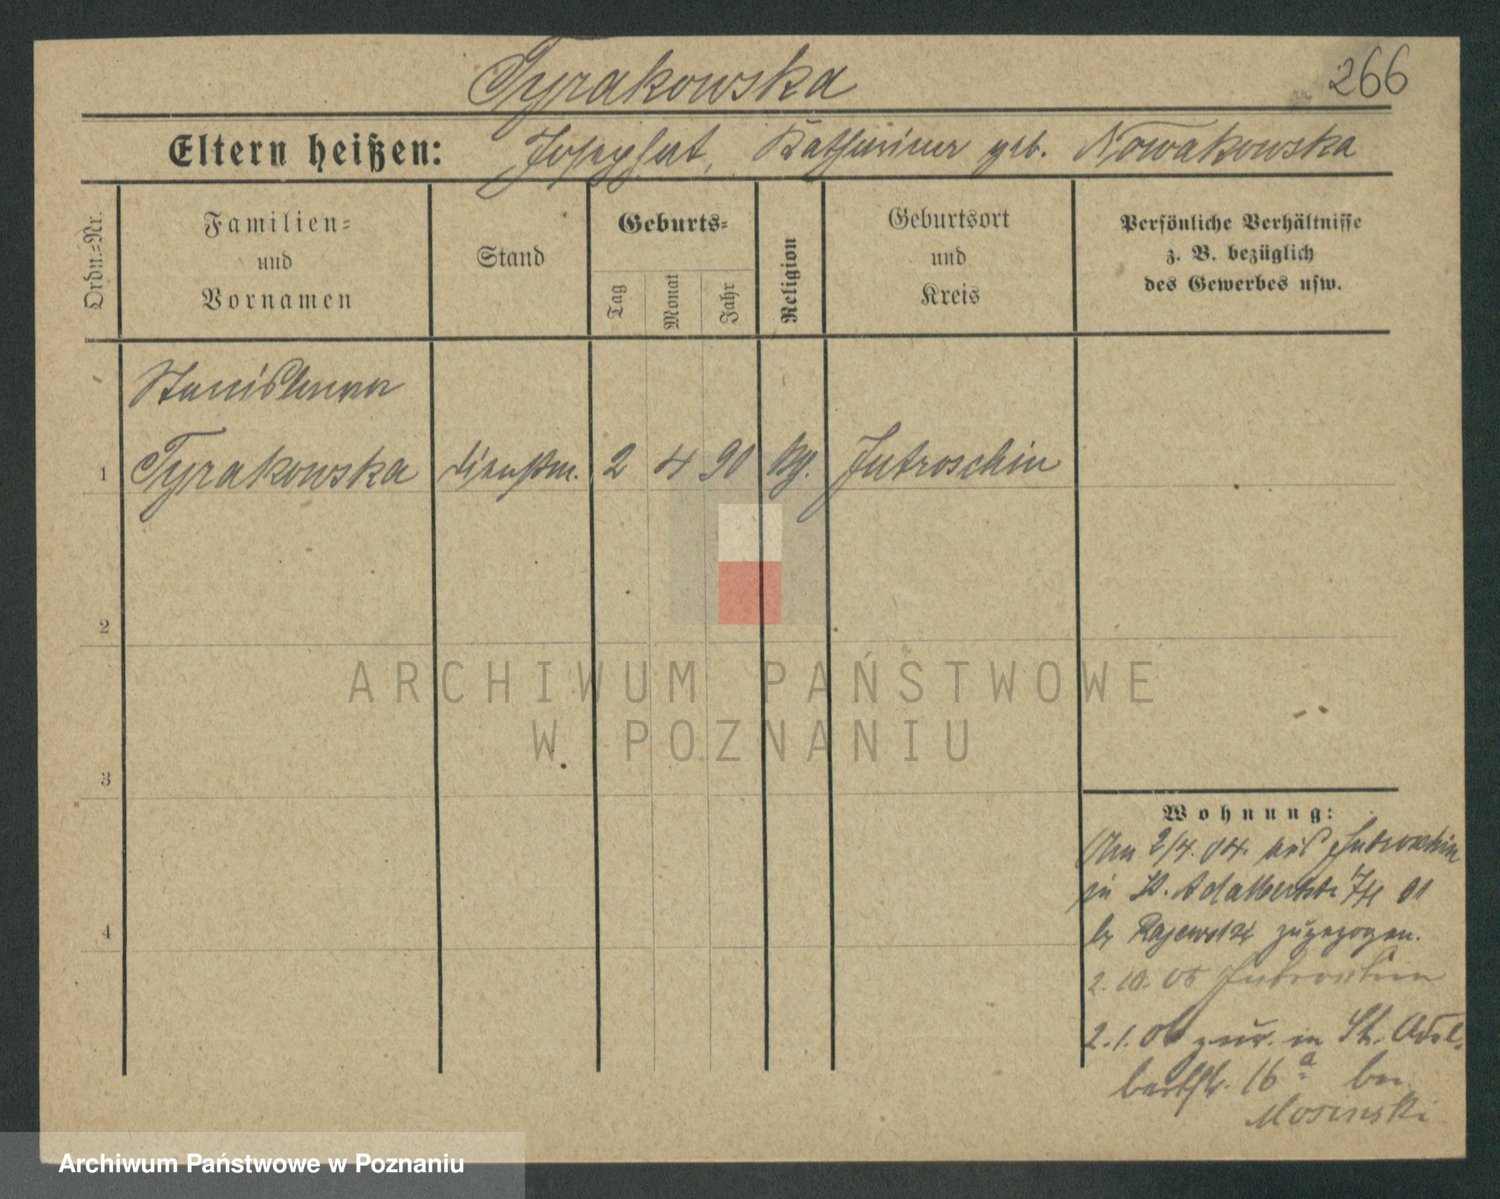 Tyrakowska
266
Eltern heißen: Josephat, Katharina geb. Nowakowska
Ordn.-Nr.
Familien-
und
Vornamen
Stand
Geburts-
Tag
Monat
Jahr
Religion
Geburtsort
und
Kreis
Persönliche Verhältnisse
z. B. bezüglich
des Gewerbes usw.
Stanislawa
1 Tyrakowska dienstm. 2 4 90 Kg. Jutroschin
2
3
4
Wohnung:
Am 2/4. 04. aus Jutroschin
in St. Adalbertstr
b. Rajewski zugezogen.
2. 10. 05 Jutroschin
2. 1. 06 zur. in St. Adal-
bertstr. 16 a bei
Mosinski
ARCHIWUM PAŃSTWOWE
W POZNANIU
Archiwum Państwowe w Poznaniu